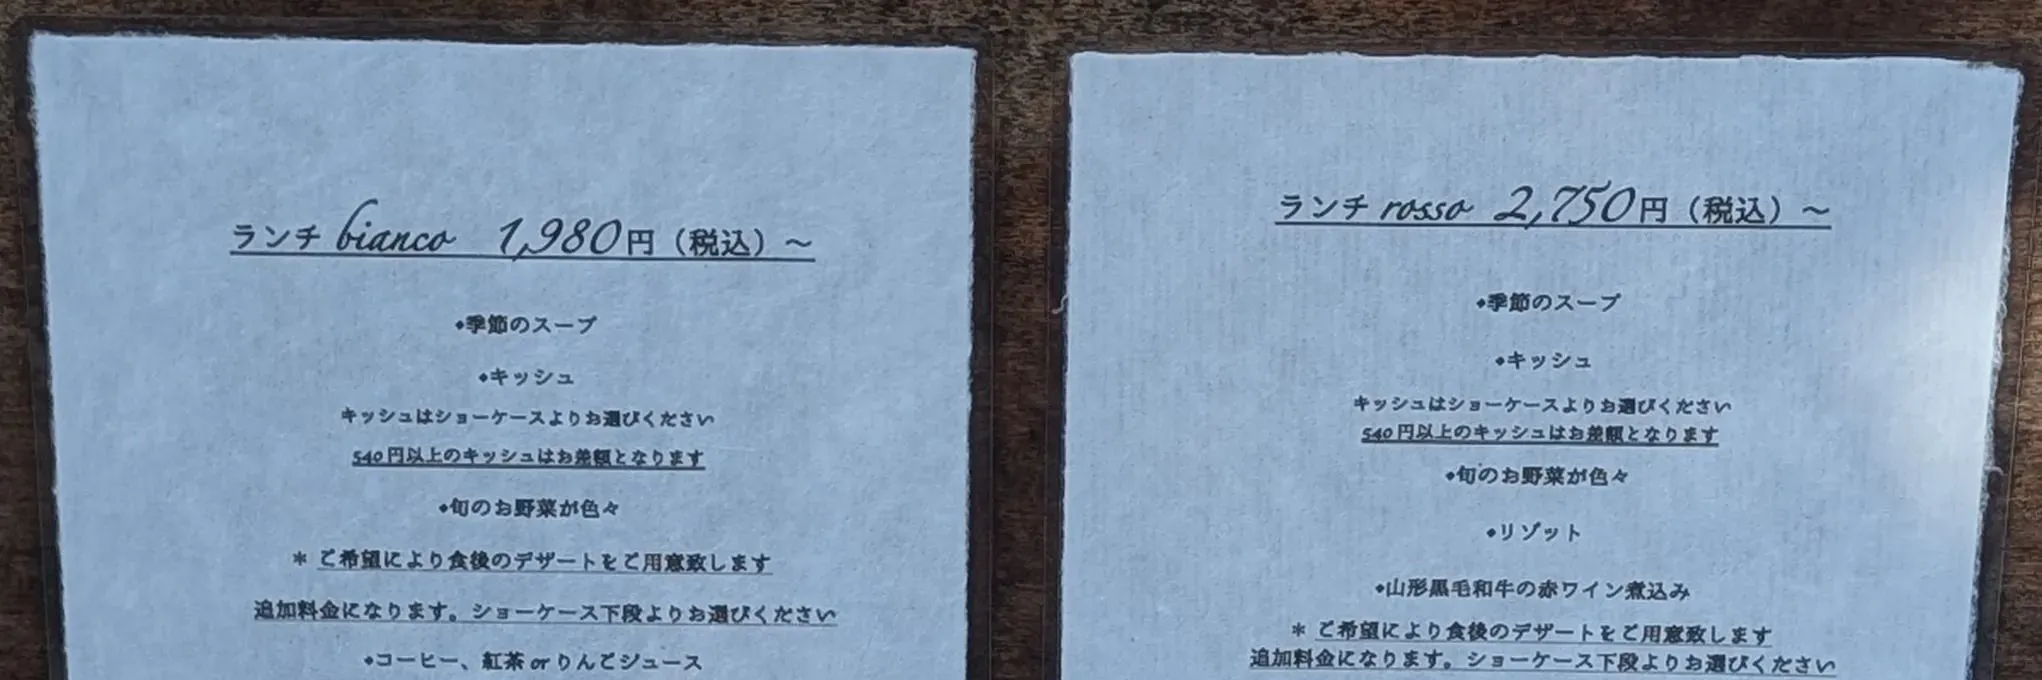 ランチ bianco 1,980円（税込）～
•季節のスープ
•キッシュ
キッシュはショーケースよりお選びください
540円以上のキッシュはお差額となります
•旬のお野菜が色々
＊ご希望により食後のデザートをご用意致します
追加料金になります。ショーケース下段よりお選びください
•コーヒー、紅茶 or りんごジュース
ランチ rosso 2,750円（税込）～
•季節のスープ
•キッシュ
キッシュはショーケースよりお選びください
540円以上のキッシュはお差額となります
•旬のお野菜が色々
•リゾット
•山形黒毛和牛の赤ワイン煮込み
＊ご希望により食後のデザートをご用意致します
追加料金になります。ショーケース下段よりお選びください